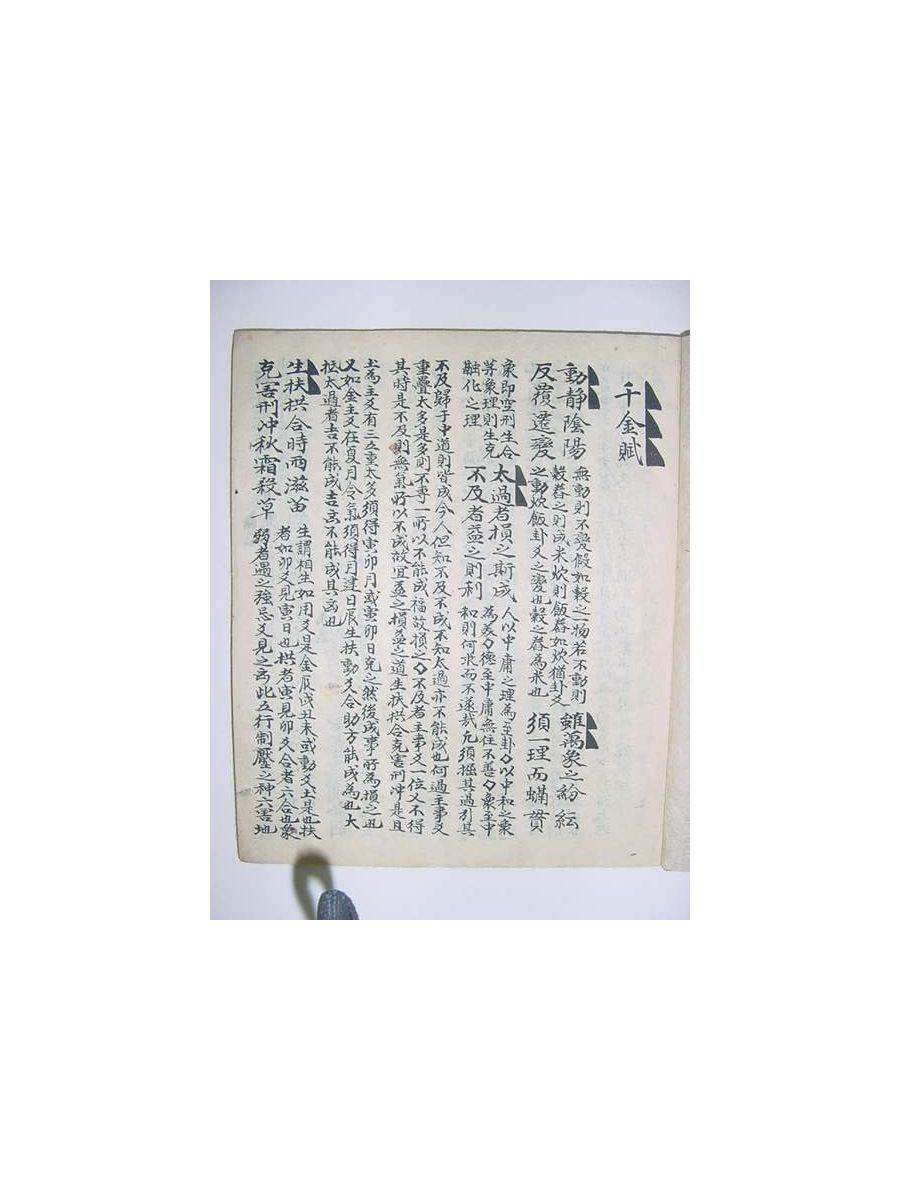 千金賦
動靜陰陽
反覆遷變
無動則不變假如穀之一物若不動則
穀舂之則成米炊則飯舂如炊猶卦爻
之動炊飯卦爻之變也穀之舂為米也
雖萬象之紛紜
須一理而螎貫
象即空刑生合
等象理則生克
融化之理
太過者損之斯成
不及者益之則利
人以中庸之理為至卦以中和之象
為美德至中庸無往不善象至中
和則何求而不遂哉凡須掘其過引其
不及歸于中道則皆成今人但知不及不成不知太過亦不能成也何過主事爻
重疊太多是多則不專一所以不能成福故損之不及者主事爻一位又不得
其時是不及則無氣所以不成故宜益之損益之道生扶拱合克害刑冲是且
土為主爻有三五重太多須得寅卯月或寅卯日克之然後成事所為損之也
又如金主爻在夏月令氣須得月建日辰生扶動爻合助方能成為也大
抵太過者吉不能成吉凶不能成其凶也
生扶拱合時雨滋苗
克害刑冲秋霜殺草
生謂相生如用爻是金辰戌丑未或動爻土是也扶
者如卯爻見寅日也拱者寅見卯爻合者六合也衆
弱者遇之強忌爻見之凶此五行制壓之神六害地